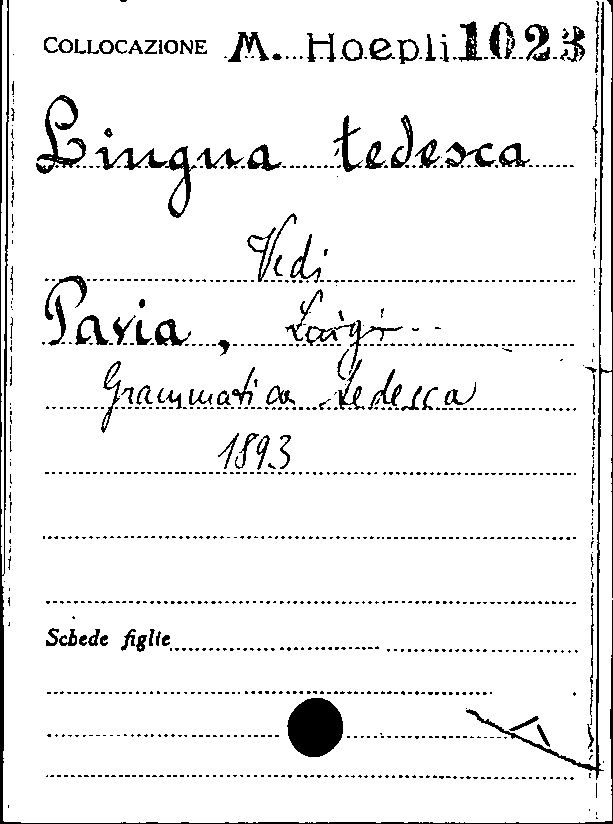 COLLOCAZIONE M. Hoepli 1023
Lingua tedesca
Vedi
Pavia, Luigi
Grammatica tedesca
1893
Schede figlie